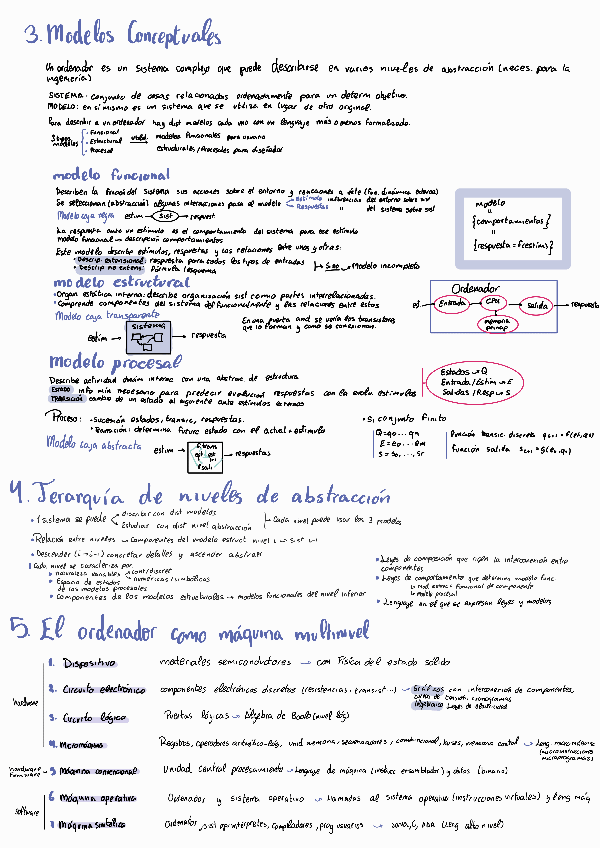 3. Modelos Conceptuales
Un ordenador es un sistema complejo que puede describirse en varios niveles de abstracción (neces. para la
ingeniería)
SISTEMA: conjunto de cosas relacionadas ordenadamente para un determ objetivo.
MODELO: en si mismo es un sistema que se utiliza en lugar de otro original.
Para describir a un ordenador hay dist modelos cada uno con un lenguaje más o menos formalizado.
3 tipos modelos
• Funcional
• Estructural
• Procesal
modelos funcionales para usuario
estructurales/Procesales para diseñador
modelo funcional
Describen la función del sistema sus acciones sobre el entorno y reacciones a éste (fun. dinámica externa)
Se seleccionan (abstracción) algunas interacciones para el modelo
Estímulo información del entorno sobre sist
Respuestas " del sistema sobre sist
Modelo caja negra estim → Sist → respuest
La respuesta ante un estímulo es el comportamiento del sistema para ese estímulo
modelo funcional → descripción comportamientos
Este modelo describe estímulos, respuestas y las relaciones entre unos y otros:
• Descrip extensional: respuesta para todos los tipos de entradas
• Descrip no extens: Fórmula/esquema
Si no → Modelo incompleto
modelo
=
{comportamientos}
=
{respuesta = f(estim)}
modelo estructural
• Organ estática interna: describe organización sist como partes interrelacionadas.
• Comprende componentes del sistema def funcionalmente y las relaciones entre éstos
Modelo caja transparente
Sistema
estim → respuesta
En una puerta and se verán los transistores
que lo forman y cómo se conexionan.
Ordenador
ej. Entrada CPU Salida respuesta
memoria princip
modelo procesal
Describe actividad dinám interna con una abstrac de estructura
Estado info mín necesaria para predecir evolución respuestas con la evolu. estímulos
Transición cambio de un estado al siguiente ante estímulos externos
Estados → Q
Entrada/Estim → E
Salidas/Resp → S
Proceso: • Sucesión estados, transic, respuestas.
• Transición: determina futuro estado con el actual + estímulo
Modelo caja abstracta
estim → respuestas
• Si conjunto finito
Q = q0 ... qn
E = e0 ... em
S = s0, ..., sr
función transic. discreta
función salida
4. Jerarquía de niveles de abstracción
• 1 sistema se puede
Describir con dist modelos
Estudiar con dist nivel abstracción
Cada nivel puede usar los 3 modelos
• Relación entre niveles → Componentes del modelo estruct nivel i → sist i-1
• Descender (i → i-1) concretar detalles y ascender abstraer
Cada nivel se caracteriza por
• Naturaleza variables → cont/discret
numéricas/simbólicas
• Espacio de estados
de los modelos procesales
• Componentes de los modelos estructurales → modelos funcionales del nivel inferior
• Leyes de composición que rigen la interconexión entre
componentes
• Leyes de comportamiento que determina modelo func
→ mod. estruc + funcional de componente
→ mod procesal
• Lenguaje en el que se expresan leyes y modelos
5. El ordenador como máquina multinivel
hardware
1. Dispositivo materiales semiconductores → con Física del estado sólido
2. Circuito electrónico componentes electrónicos discretos (resistencias, transist...) → Gráficos con interconexión de componentes,
algebraico Leyes de electricidad
3. Circuito lógico Puertas lógicas → Álgebra de Boole (nivel lóg)
4. Micromáquina Registros, operadores aritmético-lóg, unid memoria, combinacional, buses, memoria control → Leng micromáquina
(microinstrucciones
microprogramas)
hardware
firmware
5 Máquina convencional Unidad central procesamiento → lenguaje de máquina (instruc ensamblador) y datos (binario)
software
6 Máquina operativa Ordenador y sistema operativo → llamadas al sistema operativo (instrucciones virtuales) y leng máq
7 Máquina simbólica Ordenador, sist op, intérpretes, compiladores, prog usuarios → Java, C, Ada (leng alto nivel)